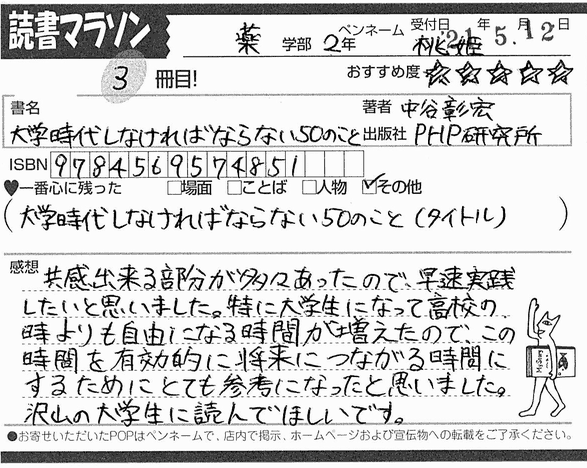 読書マラソン
薬 学部 2年 ペンネーム 桃姫 受付日 '21年5月12日
3 冊目! おすすめ度 ☆☆☆☆☆
書名 著者 中谷彰宏
大学時代しなければならない50のこと 出版社 PHP研究所
ISBN 9784569574851
♥一番心に残った □場面 □ことば □人物 ☑その他
(大学時代しなければならない50のこと (タイトル) )
感想 共感出来る部分が多々あったので、早速実践
したいと思いました。特に大学生になって高校の
時よりも自由になる時間が増えたので、この
時間を有効的に将来につながる時間に
するためにとても参考になったと思いました。
沢山の大学生に読んでほしいです。
●お寄せいただいたPOPはペンネームで、店内で掲示、ホームページおよび宣伝物への転載をご了承ください。